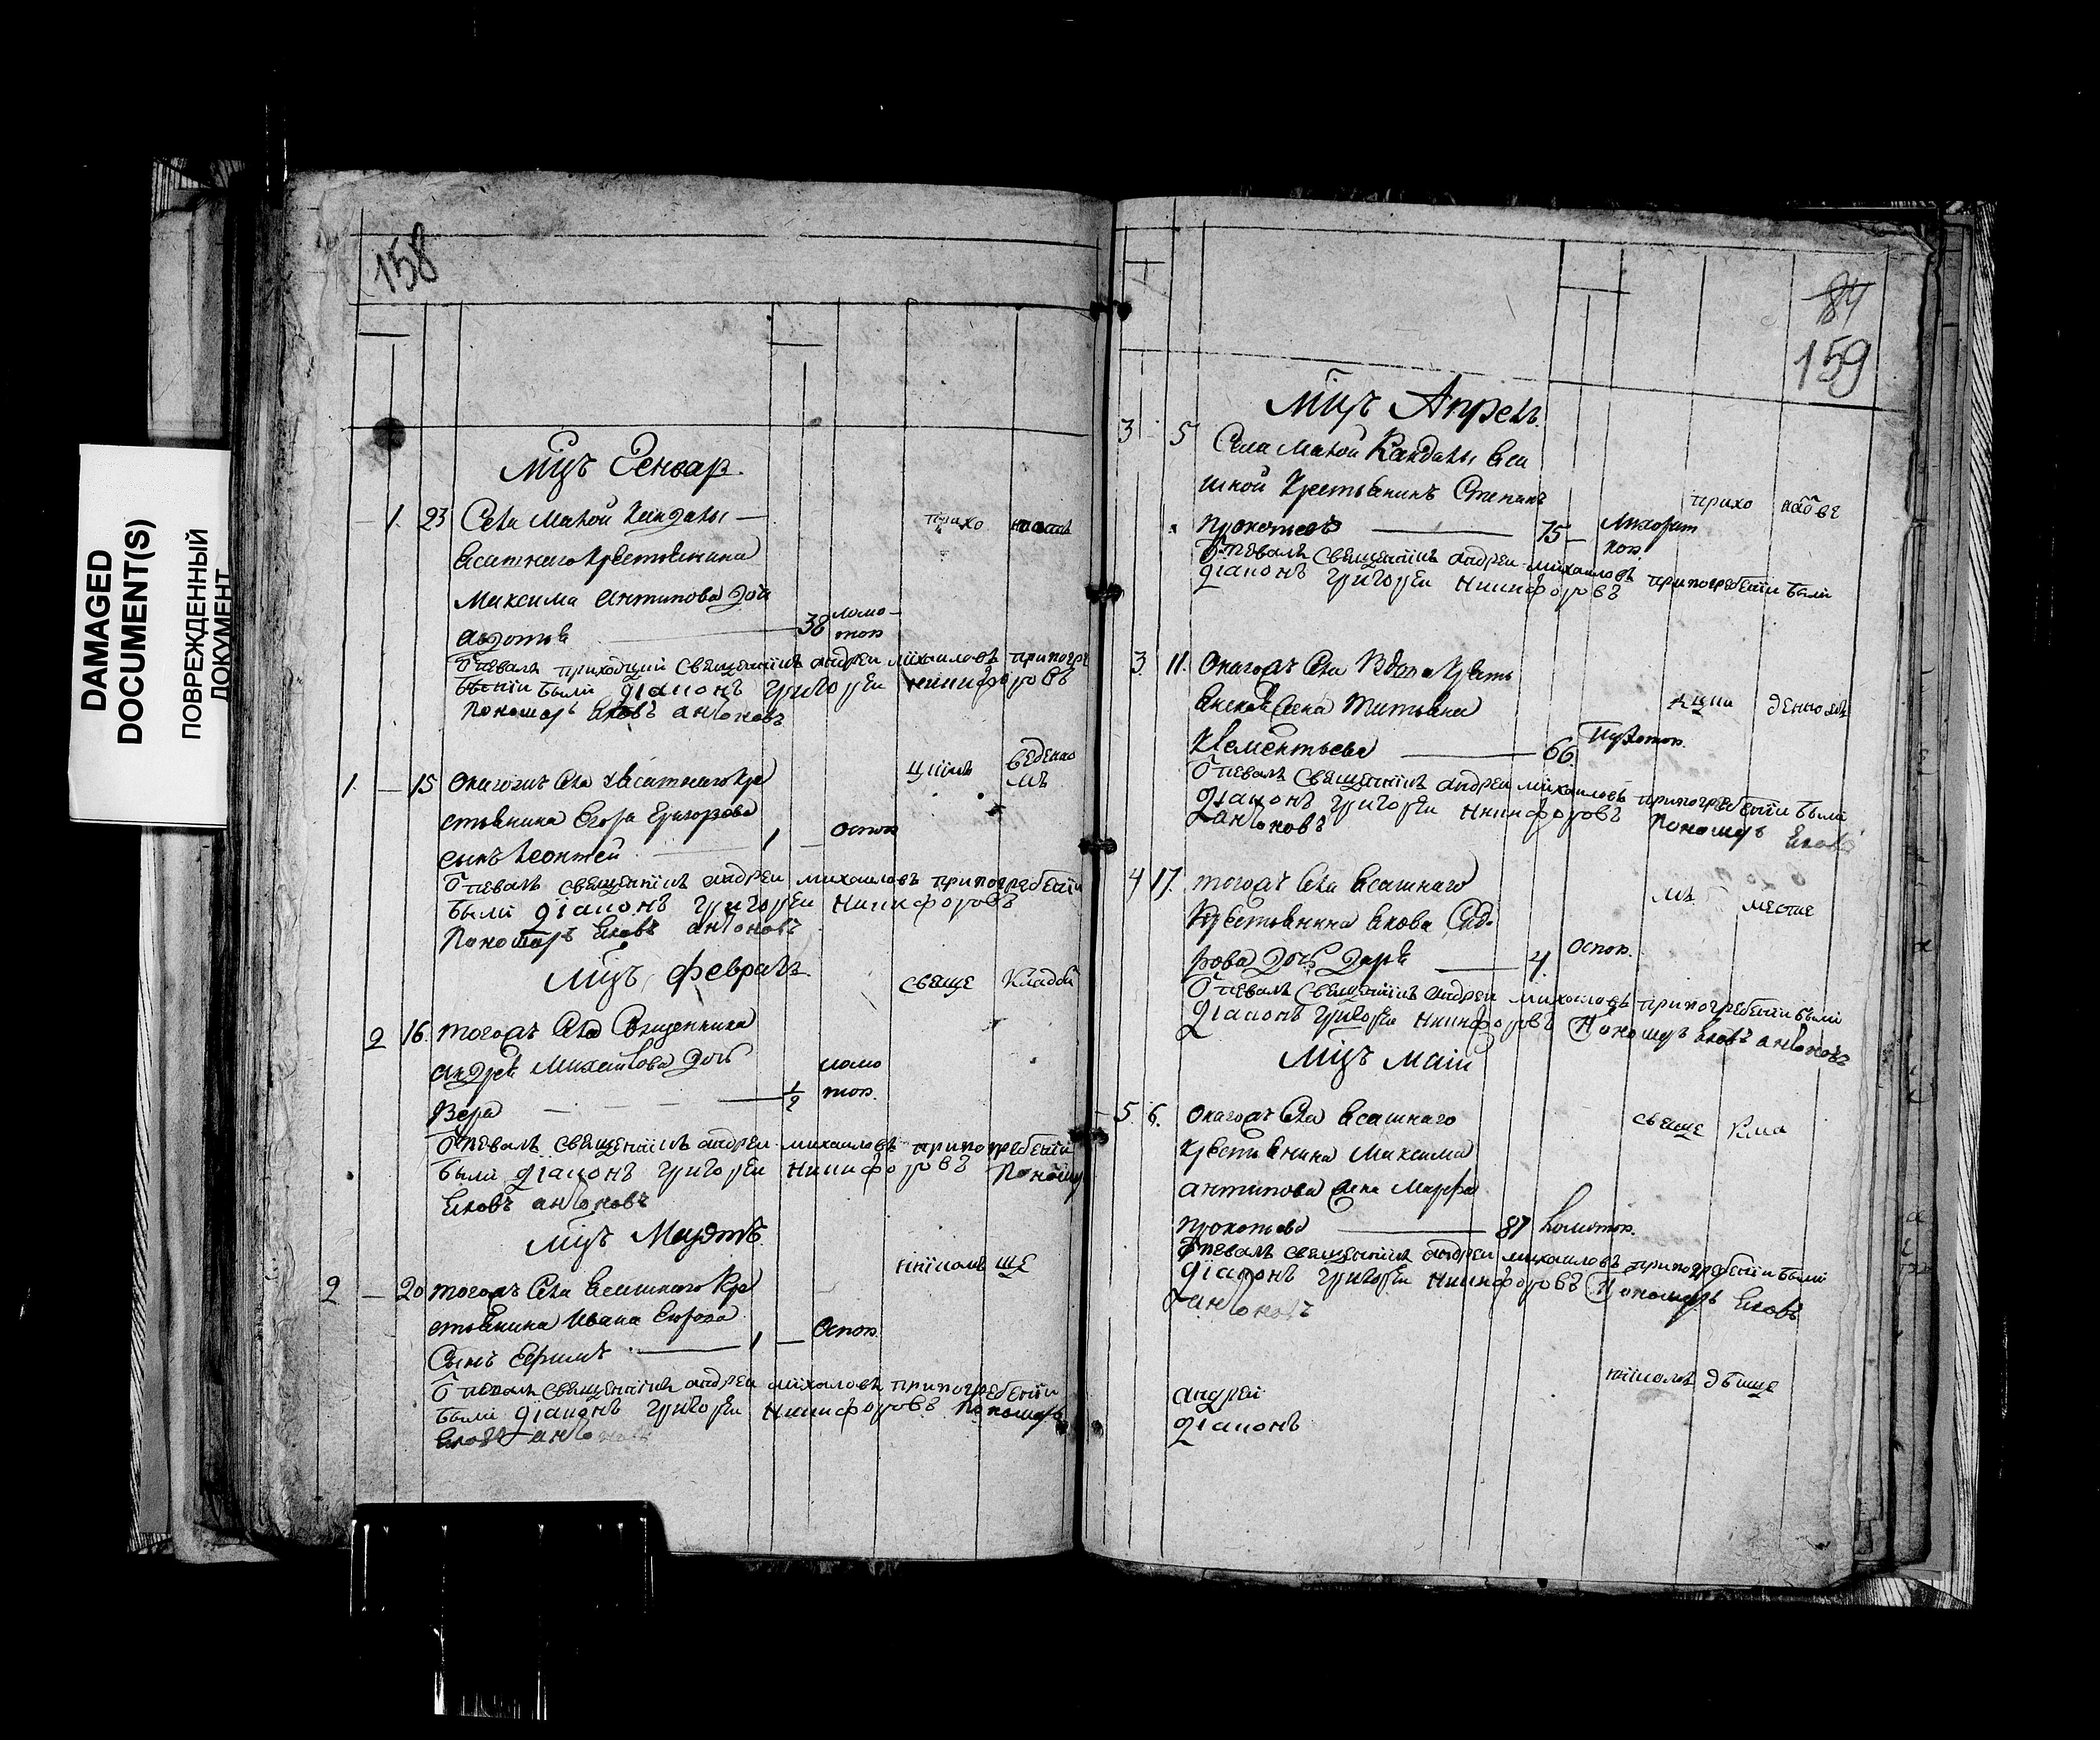 DAMAGED
DOCUMENT(S)
ПОВРЕЖДЕННЫЙ
ДОКУМЕНТ
158
Мцъ Генвар.
1. 23 Села Малой Кандалы — прихо
Ясашнаго крестьянина
Максима Антипова дочь
Авдотья 38 ломотою
Отпевалъ приходцкий священникъ андреи михаиловъ припогре
бении были диаконъ григореи никифоровъ
Пономарь Яковъ антоновъ
1. — 15 Онагожъ Села Ясашнаго кре цкимъ веденно мъ
стьянина Егора Григорьева
сынъ Леонтей 1 — оспою
Отпевалъ священникъ андреи михаиловъ припогребении
были диаконъ григореи никифоровъ
Пономарь Яковъ антоновъ
Мцъ февраль. свеще кладби
2 16. тогожъ Села Священника
андрея Михаилова дочь
Вера 1/2 ломотою.
Отпевалъ священникъ андреи михаиловъ припогребении
были диаконъ григореи никифоровъ Пономарь
Яковъ антоновъ
Мцъ Мартъ.
нникомъ ще
2 — 20 тогожъ Села Ясашнаго кре
стьянина Ивана
Сынъ Ефимъ 1 — Оспою.
Отпевалъ священникъ андреи михаиловъ припогребении
были диаконъ григореи никифоровъ Пономарь
Яковъ антоновъ
84
159
Мцъ Апрель.
3 5 Села Малой Кандалы Яса
шной крестьянинъ Степанъ
Прокофьевъ 75 — Лихорат кою. прихо наотве
Отпевалъ священникъ андреи михаиловъ припогребении были
диаконъ григореи никифоровъ
3. 11. Онагожъ Села Вдова кресть
янская жена Татьяна
Клементьева 66. цкпи денном
Отпевалъ священникъ андреи михаиловъ припогребении были
диаконъ григореи никифоровъ Пономарь Яковъ
антоновъ
4 17. тогожъ Села Ясашнаго мъ месте
Крестьянина Якова Сидо
рова дочь Дарья 4. Оспою.
Отпевалъ священникъ андреи михаиловъ припогребении были
диаконъ григореи никифоровъ Пономарь Яковъ антоновъ
Мцъ Маии
5. 6. Онагожъ Села Ясашнаго свеще кла
Крестьянина Максима
антипова жена Марфа
Прокофьева 87 Ломотою.
Отпевалъ священникъ андреи михаиловъ припогребении были
диаконъ григореи никифоровъ Пономарь Яковъ
антоновъ
нникомъ дбище
андреи
диаконъ